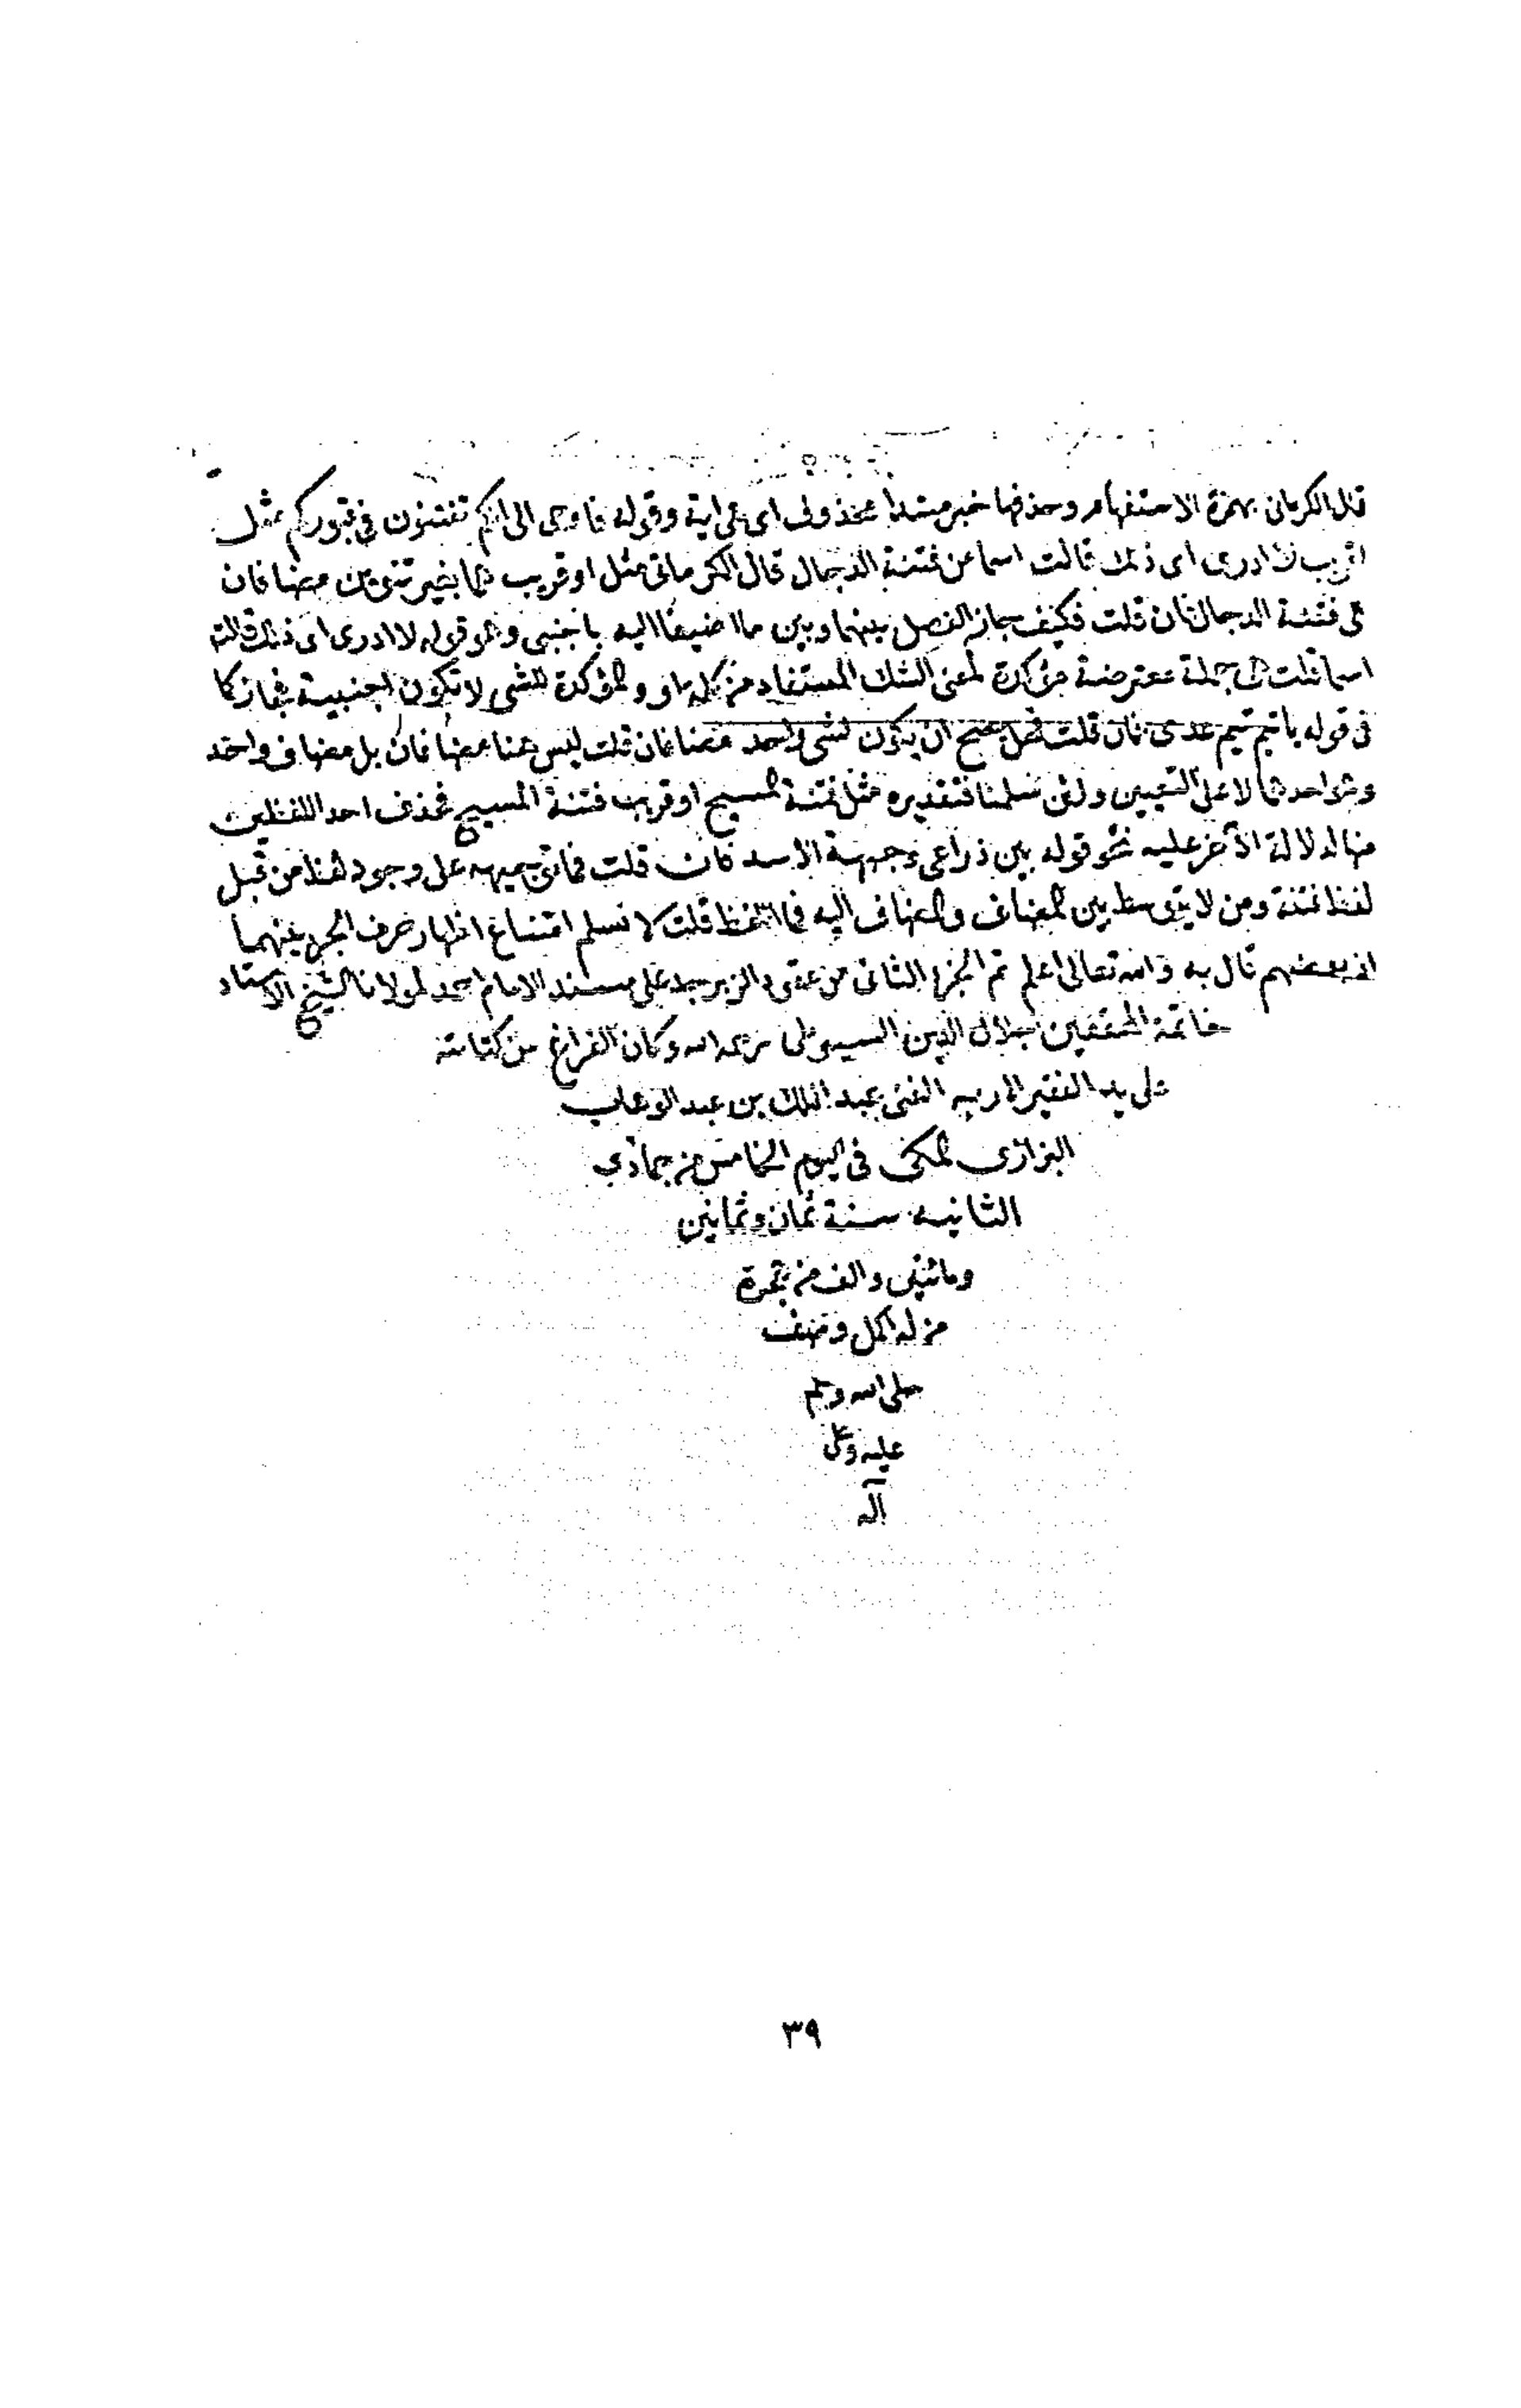 قال الكرماني بهمزة الاستفهام وحذفها خبر مبتدأ محذوف اي هي اية وقوله فاوحى الى انكم تفتنون في قبوركم مثل
او قريب لا ادرى اى ذلك قالت اسما من فتنة الدجال قال الكرماني مثل او قريب هما بغير تنوين مضافان
الى فتنة الدجال فان قلت فكيف جاز الفصل بينهما وبين ما اضيفا اليه باجنبى وهو قوله لا ادرى اى ذلك قالت
اسما قلت هى جملة معترضة مؤكدة لمعنى الشك المستفاد من كلمة او والمؤكدة للشى لا تكون اجنبية فجاز كما
فى قوله يا تيم تيم عدى فان قلت فهل يصح ان يكون لشى واحد مضافان قلت ليس هنا مضافان بل مضاف واحد
وهو احدهما لا على التعيين ولئن سلمنا فتقديره مثل فتنة المسيح او قريب فتنة المسيح فحذف احد اللفظين
منها لدلالة الآخر عليه نحو قوله بين ذراعى وجبهة الاسد فان قلت فما توجيهه على وجود لفظ من قبل
لفظ فتنة ومن لا يتوسط بين المضاف والمضاف اليه في اللفظ قلت لا نسلم امتناع اظهار حرف الجر بينهما
اذ بعضهم قال به والله تعالى اعلم تم الجزء الثانى من عقود الزبرجد على مسند الامام احمد لمولانا الشيخ الاستاد
خاتمة المحققين جلال الدين السيوطى رحمه الله وكان الفراغ من كتابته
على يد الفقير لا ربه الغنى عبد الملك بن عبد الوهاب
المكى فى اليوم الخامس من جمادي
الثانيه سنة ثمان وثمانين
ومائتين والف من هجرة
من له اكمل وصف
صلى الله وسلم
عليه وعلى
آله
٣٩